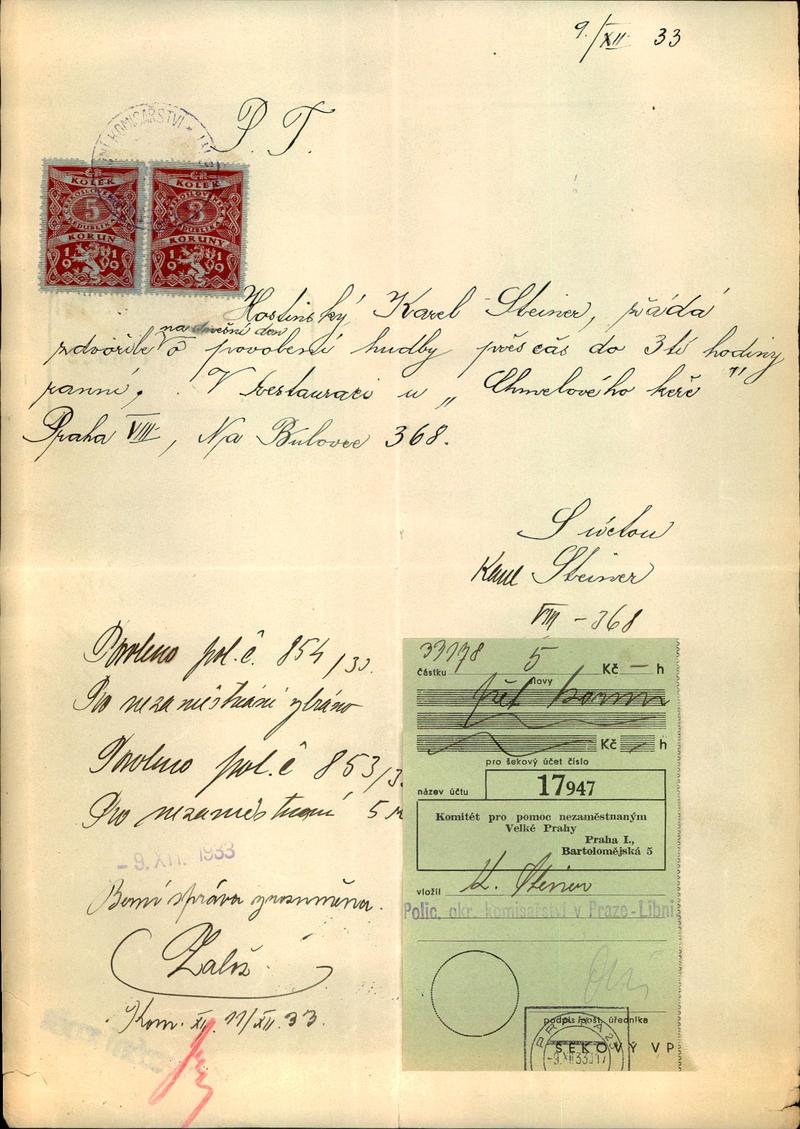 9./XII 33
P. T.
NÍ KOMISAŘSTVÍ
ČR
KOLEK
5
KORUN
1919
ČR
KOLEK
3
KORUNY
1919
Hostinský Karel Steiner, žádá
na dnešní den
zdvořile o povolení hudby přes čas do 3tí hodiny
ranní. V restauraci u „Chmelového keře"
Praha VIII, Na Bulovce 368.
S úctou
Karel Steiner
VIII - 368
Povoleno pol. č. 854/33.
Pro nezaměstnané vybráno
Povoleno pol. č 853/3
Pro nezaměstnané 5 K
- 9. XII. 1933
Berní správa zrozuměna.
Založ.
Kom. XI. 11/XII 33.
33178
Částku 5 Kč — h
slovy
pět korun
Kč — h
pro šekový účet číslo
název účtu 17947
Komitét pro pomoc nezaměstnaným
Velké Prahy
Praha I.,
Bartolomějská 5
vložil K. Steiner
Polic. okr. komisařství v Praze-Libni
podpis pošt. úředníka
ŠEKOVÝ VP
PRAHA